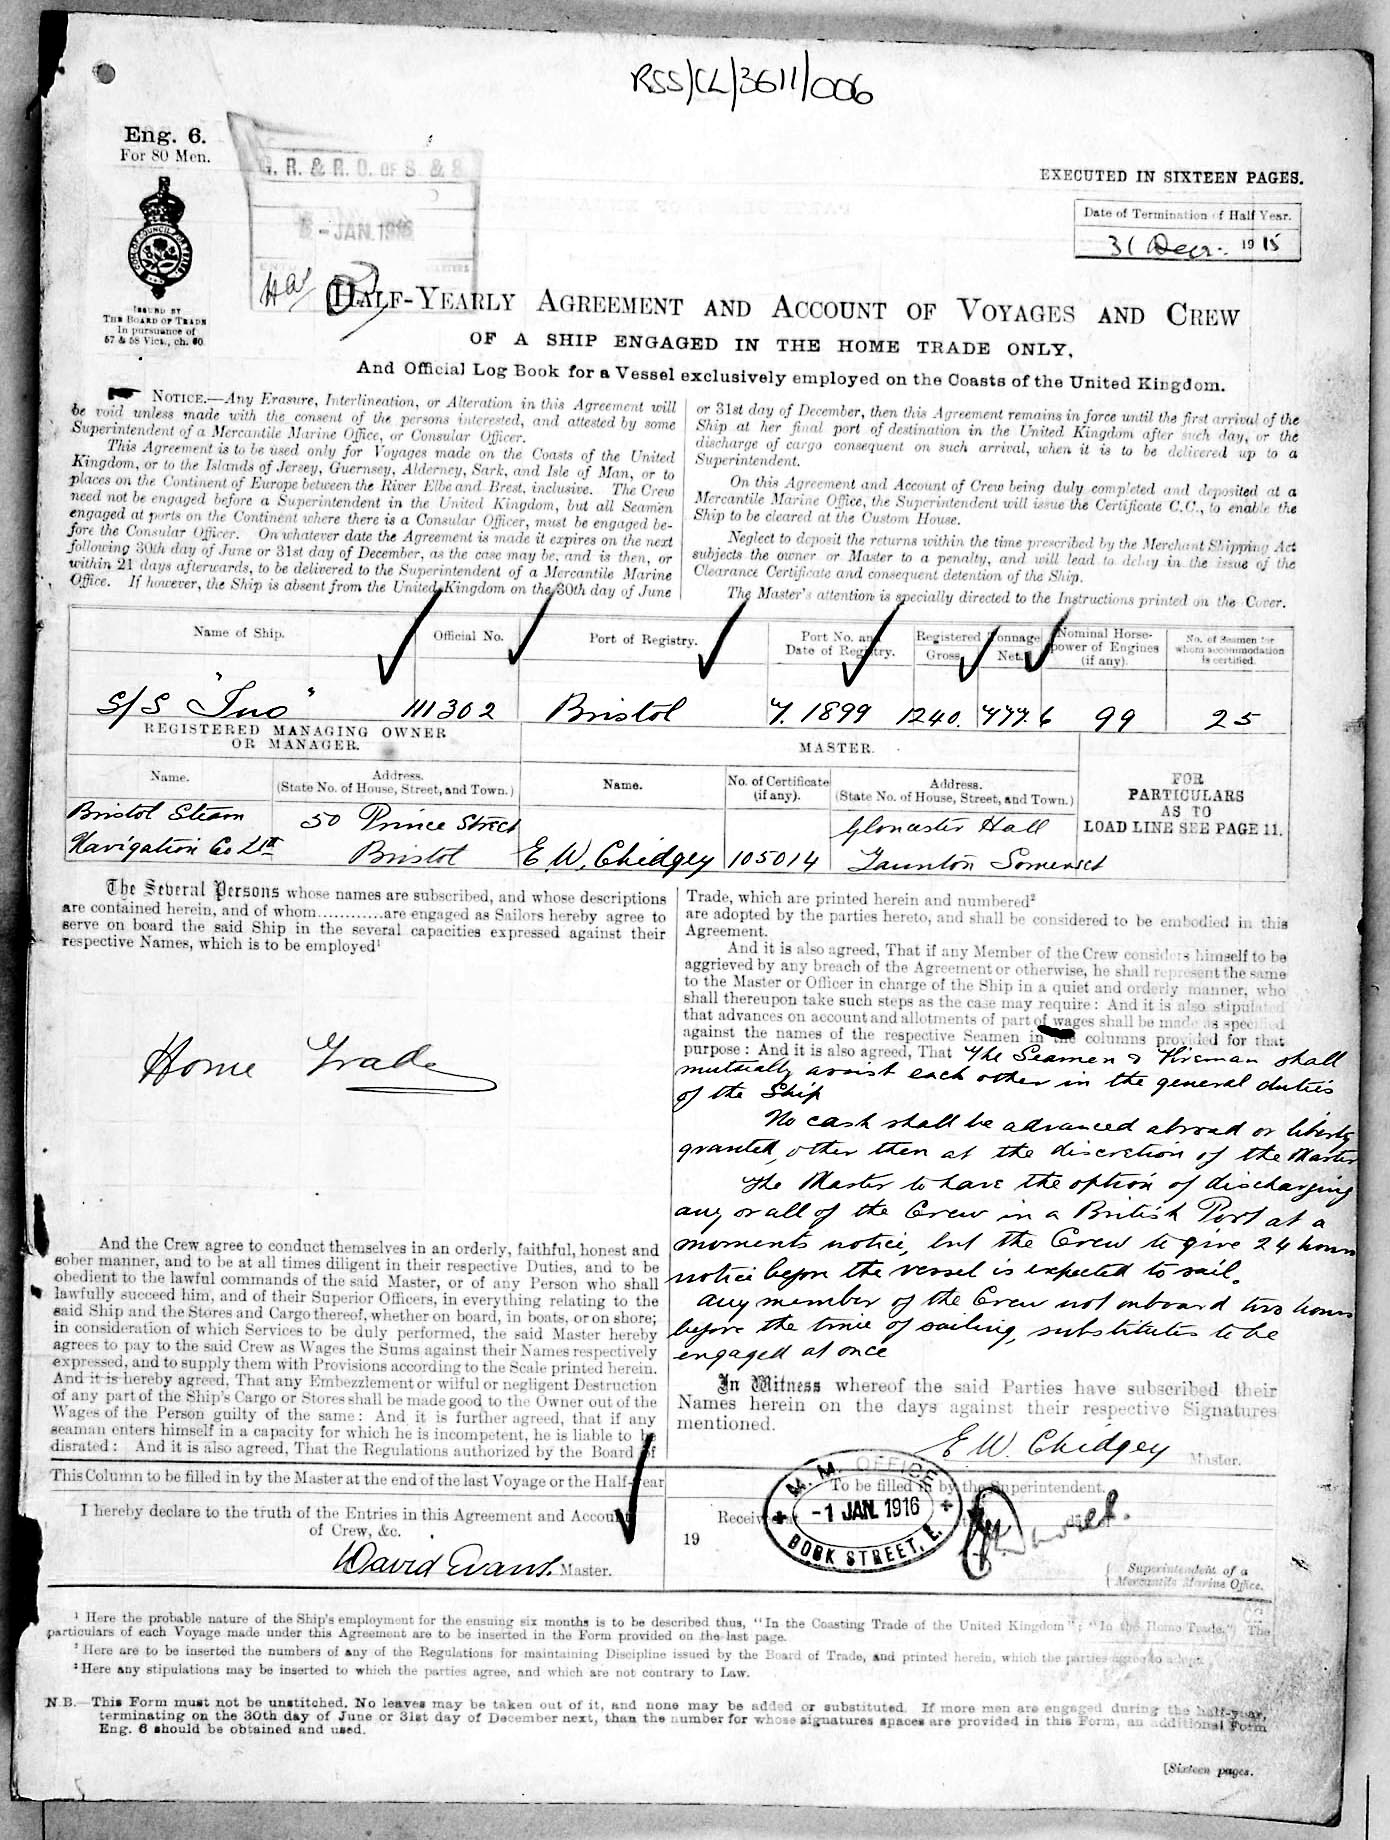 RSS/CL/3611/006
Eng. 6.
For 80 Men.
G. R. & R. O. OF S. & S.
- JAN. 1916
ISSUED BY
THE BOARD OF TRADE
In pursuance of
57 & 58 Vict., ch. 60.
EXECUTED IN SIXTEEN PAGES.
Date of Termination of Half Year.
31 Decr. 1915
HALF-YEARLY AGREEMENT AND ACCOUNT OF VOYAGES AND CREW
OF A SHIP ENGAGED IN THE HOME TRADE ONLY,
And Official Log Book for a Vessel exclusively employed on the Coasts of the United Kingdom.
NOTICE.—Any Erasure, Interlineation, or Alteration in this Agreement will
be void unless made with the consent of the persons interested, and attested by some
Superintendent of a Mercantile Marine Office, or Consular Officer.
This Agreement is to be used only for Voyages made on the Coasts of the United
Kingdom, or to the Islands of Jersey, Guernsey, Alderney, Sark, and Isle of Man, or to
places on the Continent of Europe between the River Elbe and Brest, inclusive. The Crew
need not be engaged before a Superintendent in the United Kingdom, but all Seamen
engaged at ports on the Continent where there is a Consular Officer, must be engaged be-
fore the Consular Officer. On whatever date the Agreement is made it expires on the next
following 30th day of June or 31st day of December, as the case may be, and is then, or
within 21 days afterwards, to be delivered to the Superintendent of a Mercantile Marine
Office. If however, the Ship is absent from the United Kingdom on the 30th day of June
or 31st day of December, then this Agreement remains in force until the first arrival of the
Ship at her final port of destination in the United Kingdom after such day, or the
discharge of cargo consequent on such arrival, when it is to be delivered up to a
Superintendent.
On this Agreement and Account of Crew being duly completed and deposited at a
Mercantile Marine Office, the Superintendent will issue the Certificate C.C., to enable the
Ship to be cleared at the Custom House.
Neglect to deposit the returns within the time prescribed by the Merchant Shipping Act
subjects the owner or Master to a penalty, and will lead to delay in the issue of the
Clearance Certificate and consequent detention of the Ship.
The Master's attention is specially directed to the Instructions printed on the Cover.
Name of Ship.
Official No.
Port of Registry.
Port No. and
Date of Registry.
Registered Tonnage
Gross.
Net.
Nominal Horse-
power of Engines
(if any).
No. of Seamen for
whom accommodation
is certified.
S/S "Juno"
111302
Bristol
7. 1899
1240.
777.6
99
25
REGISTERED MANAGING OWNER
OR MANAGER.
MASTER.
Name.
Address.
(State No. of House, Street, and Town.)
Name.
No. of Certificate
(if any).
Address.
(State No. of House, Street, and Town.)
FOR
PARTICULARS
AS TO
LOAD LINE SEE PAGE 11.
Bristol Steam
Navigation Co Ltd
50 Prince Street
Bristol
E. W. Chidgey
105014
Gloucester Hall
Taunton Somerset
The Several Persons whose names are subscribed, and whose descriptions
are contained herein, and of whom............are engaged as Sailors hereby agree to
serve on board the said Ship in the several capacities expressed against their
respective Names, which is to be employed¹
Home Trade
And the Crew agree to conduct themselves in an orderly, faithful, honest and
sober manner, and to be at all times diligent in their respective Duties, and to be
obedient to the lawful commands of the said Master, or of any Person who shall
lawfully succeed him, and of their Superior Officers, in everything relating to the
said Ship and the Stores and Cargo thereof, whether on board, in boats, or on shore;
in consideration of which Services to be duly performed, the said Master hereby
agrees to pay to the said Crew as Wages the Sums against their Names respectively
expressed, and to supply them with Provisions according to the Scale printed herein.
And it is hereby agreed, That any Embezzlement or wilful or negligent Destruction
of any part of the Ship's Cargo or Stores shall be made good to the Owner out of the
Wages of the Person guilty of the same: And it is further agreed, that if any
seaman enters himself in a capacity for which he is incompetent, he is liable to be
disrated: And it is also agreed, That the Regulations authorized by the Board of
Trade, which are printed herein and numbered²
are adopted by the parties hereto, and shall be considered to be embodied in this
Agreement.
And it is also agreed, That if any Member of the Crew considers himself to be
aggrieved by any breach of the Agreement or otherwise, he shall represent the same
to the Master or Officer in charge of the Ship in a quiet and orderly manner, who
shall thereupon take such steps as the case may require: And it is also stipulated
that advances on account and allotments of part of wages shall be made as specified
against the names of the respective Seamen in the columns provided for that
purpose: And it is also agreed, That The Seamen & Fireman shall
mutually assist each other in the general duties
of the Ship
No cash shall be advanced abroad or liberty
granted, other then at the discretion of the Master
The Master to have the option of discharging
any or all of the Crew in a British Port at a
moments notice, but the Crew to give 24 hours
notice before the vessel is expected to sail.
Any member of the Crew not onboard two hours
before the time of sailing, substitutes to be
engaged at once
In Witness whereof the said Parties have subscribed their
Names herein on the days against their respective Signatures
mentioned.
E. W. Chidgey Master.
This Column to be filled in by the Master at the end of the last Voyage or the Half-year
I hereby declare to the truth of the Entries in this Agreement and Account
of Crew, &c.
David Evans. Master.
To be filled in by the Superintendent.
19
M. M. OFFICE
- 1 JAN. 1916
DOCK STREET, E.
Superintendent of a
Mercantile Marine Office.
¹ Here the probable nature of the Ship's employment for the ensuing six months is to be described thus, "In the Coasting Trade of the United Kingdom"; "In the Home Trade." The
particulars of each Voyage made under this Agreement are to be inserted in the Form provided on the last page.
² Here are to be inserted the numbers of any of the Regulations for maintaining Discipline issued by the Board of Trade, and printed herein, which the parties agree to adopt.
³ Here any stipulations may be inserted to which the parties agree, and which are not contrary to Law.
N.B.—This Form must not be unstitched. No leaves may be taken out of it, and none may be added or substituted. If more men are engaged during the half-year,
terminating on the 30th day of June or 31st day of December next, than the number for whose signatures spaces are provided in this Form, an additional Form
Eng. 6 should be obtained and used.
[Sixteen pages.